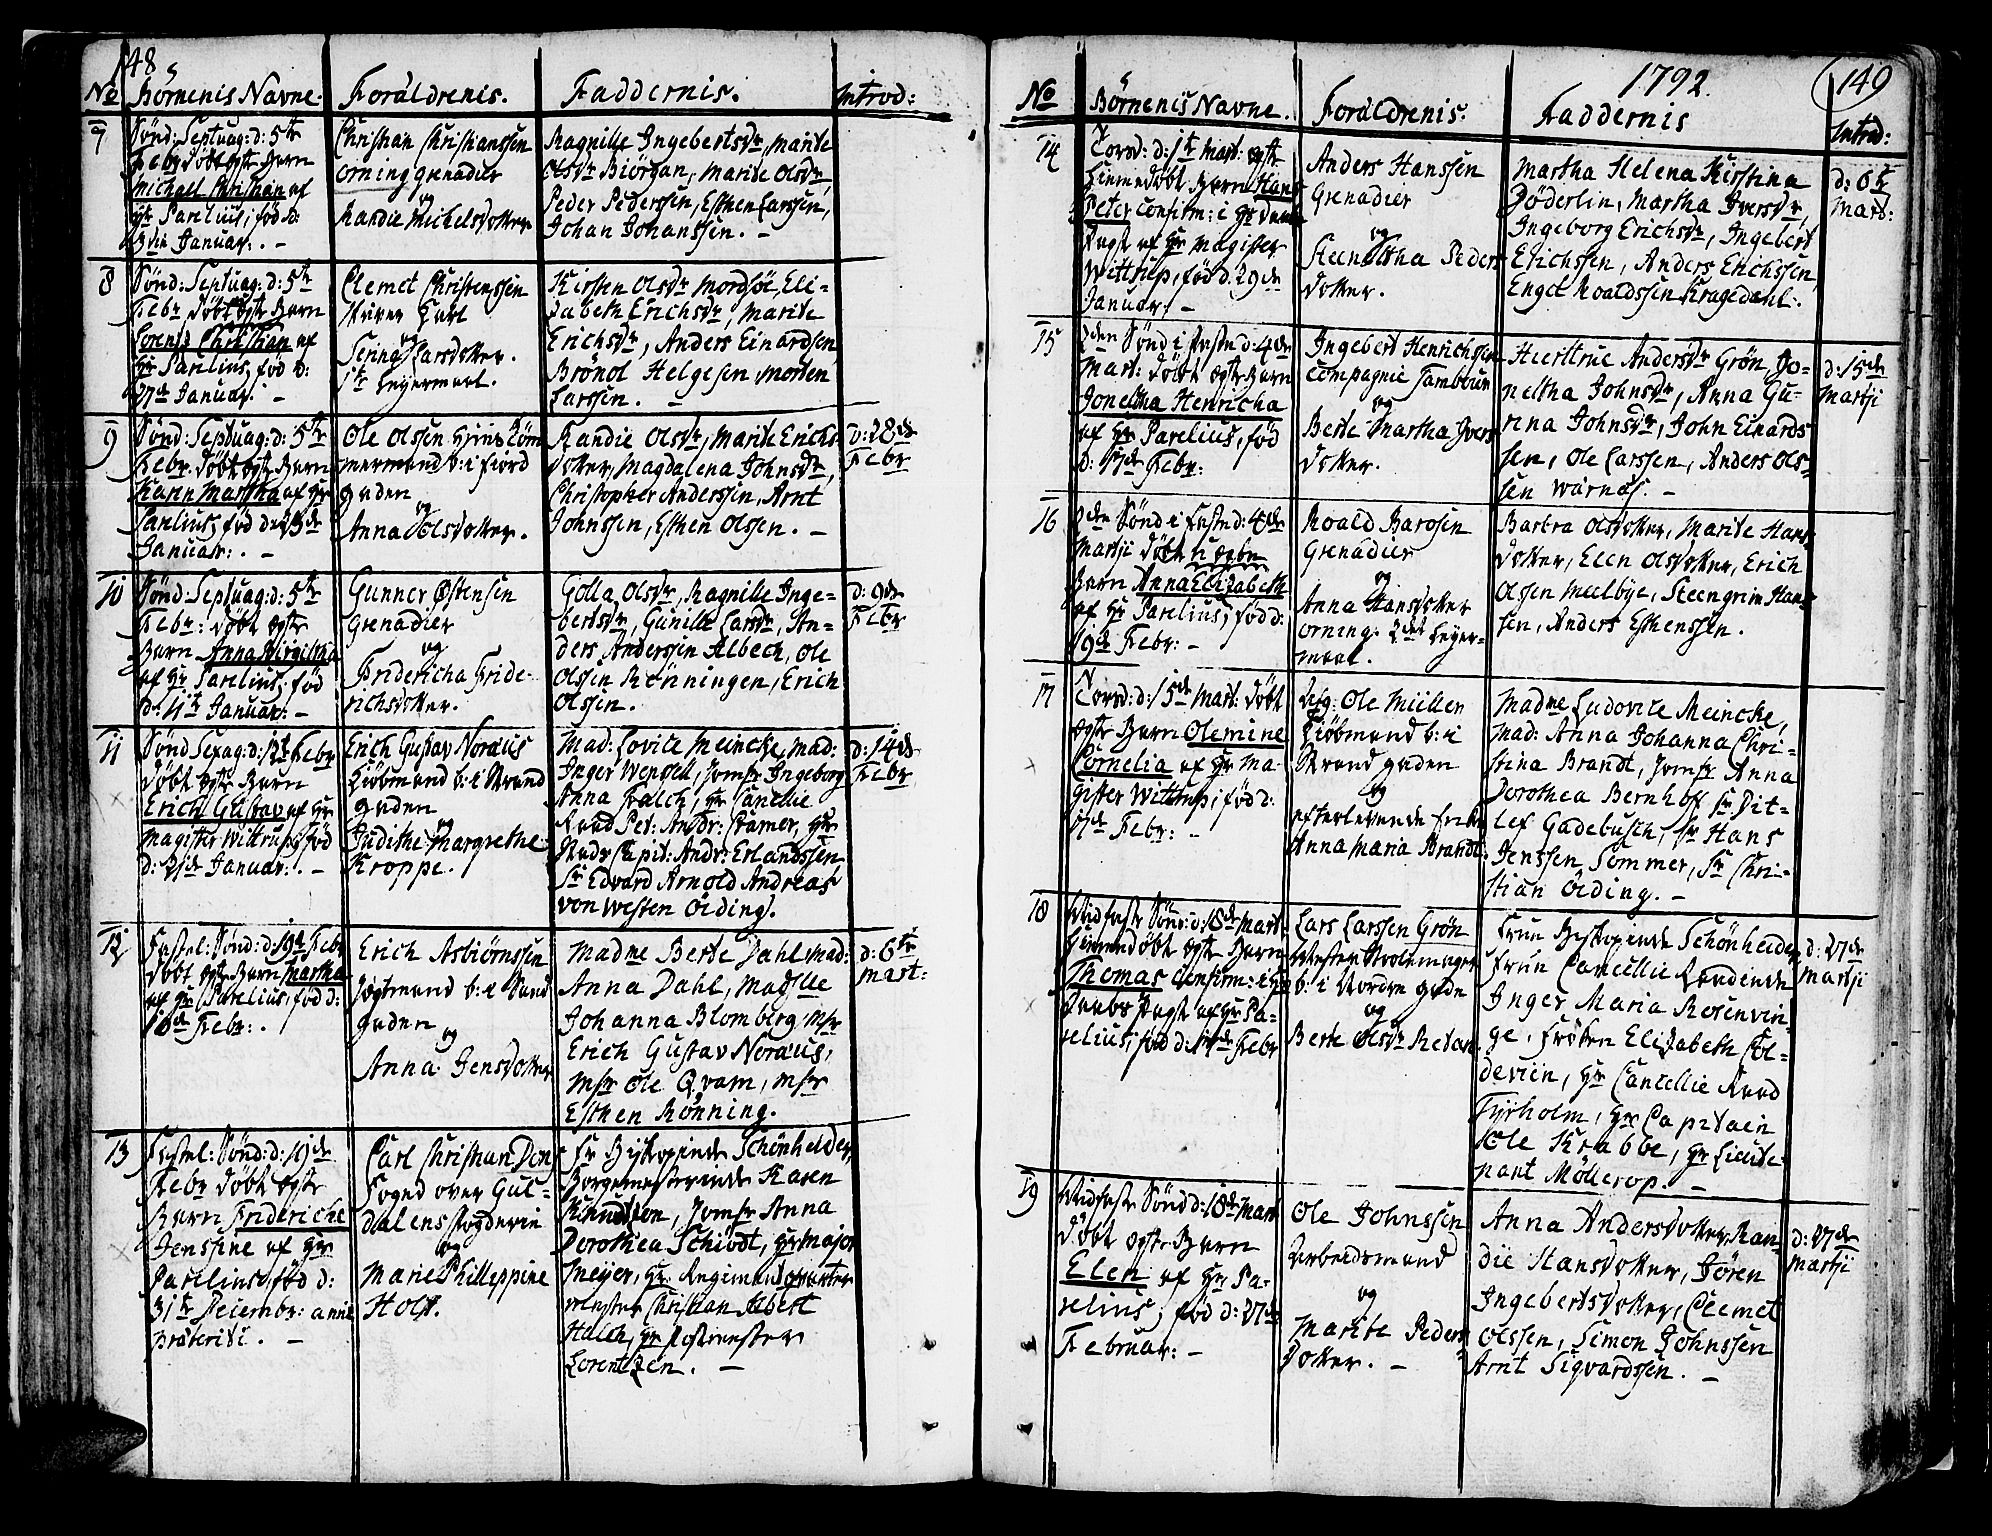 148
No Börnenis Navne. Foraldrenis. Faddernis. Introd:
7
Sönd: Septuag: d: 5te
Febr Döbt ægte Barn
Michael Christian af
Hr Parelius, föd d:
Januar: . –
Christian Christianssen
orning grenadier
og
Randie Michelsdotter
Ragnille Ingebertsdr, Marite
Olsdr Biörgan, Marite Olsdr
Peder Pederssen, Esthen Larssen,
Johan Johanssen. –
8
Sönd: Septuag: d: 5te
Febr Döbt ægte Barn
Lorents Christian af
Hr Parelius, föd d:
27de Januar. –
Clemet Christenssen
og
Sering Larsdotter.
1te Leyermaal.
Kirsten Olsdr Mordföl, Eli-
sabeth Erichsdr, Marite
Erichsdr, Anders Einardsen
Brönol Helgesen, Morten
Larssen. –
9
Sönd: Septuag: d: 5te
Febr. Döbt ægte Barn
Karen Martha af Hr
Parelius, föd d: 23de
Januar: . –
Ole Olssen Töm
mermand b: i fiord
gaden
og
Anna Olsdotter.
Randie Olsdr, Marite Erichs
dotter, Magdalena Johnsdr,
Christopher Anderssen, Arnt
Johnssen, Esthen Olssen. –
d: 28de
Febr
10
Sönd: Septuag: d: 5te
Febr: Döbt ægte
Barn Anna Birgitha
af Hr Parelius, föd
d: 11te Januar: –
Gunner Östensen
Grenadier
og
Friderica Fride-
richsdotter.
Golla Olsdr, Ragnille Inge-
bertsdr, Gunille Larsdr, An-
ders Anderssen Albech, Ole
Olssen Rönningen, Erich
Olssen.
d: 9de
Febr
11
Sönd Sexag: d: 12te Febr
Döbt ægte Barn
Erich Gustav af Hr
Magister Wittrup, föd
d: 21de Januar: . –
Erich Gustav Noræus
Kiöbmand b: i Strand
gaden
og
Judithe Margrethe
Kroppe.
Mad: Lovice Meincke, Mad:
Inger Wensell, Jomfr Ingeborg
Anna Falch, Hr Cancellie
Raad Pet: Andr: Stamer, Hr
Stads Capit: Andr: Erlandssen
Sr Edvard Arnold Andreas
von Westen Öiding.
d: 14de
Febr
12
Fastel: Sönd: d: 19de Febr
Döbt ægte Barn Martha
af Hr Parelius, föd d:
10de Febr: .
Erich Asbiörnssen
Jægtmand b: i Sand
gaden
og
Anna Jensdotter
Madme Berte Dahl, Mad:
Anna Dahl, Madslle
Johanna Blomberg, Msr
Erich Gustav Noræus,
Msr Ole Qvam, Msr
Esthen Rönning.
d: 6te
Mart:
13
Fastel: Sönd: d: 19de
Febr Döbt ægte
Barn Friderche
Jensine af Hr
Parelius föd d:
31te Decembr: anni
præteriti. –
Carl Christian Dons
Foged over Gul-
dalens Fogderie
og
Marie Philleppine
Holst.
Fr Biskopinde Schönheider,
Borgemesterinde Karen
Knudtzon, Jomfr Anna
Dorothea Schiödt, Hr Major
Meyer, Hr Regimentsqvarter
mester Christian Albert
Halch, Hr Postmester
Lorentzen. –
1792. 149
No Börnenis Navne. Foraldrenis. Faddernis Introd:
14
Torsd: d: 1te Mart: ægte
Hiemmedöbt Barn Hans
Peter confirm: i Hr
af Hr Magister
Wittrup, föd d. 29de
Januar: –
Anders Hanssen
Grenadier
og
Steentha Peders
dotter.
Martha Helena Kirstina
Döderlin, Martha Iversdr,
Ingeborg Erichsdr, Ingebert
Erichssen, Anders Erichssen,
Engel Roaldssen Kragedahl.
d: 6te
Mart:
15
2den Sönd i Faste d: 4de
Mart: Döbt ægte Barn
Joneltha Henricha
af Hr Parelius, föd
d: 17de Febr:
Ingebert Henrichssen
Compagnie Tambour
og
Berte Martha Ivers
dotter.
Hiertrue Andersdr Grön, Jo-
neltha Johnsdr, Anna Gu-
rina Johnsdr, John Einards
sen, Ole Larssen, Anders Ols-
sen Wärnäs. –
d: 15de
Martji
16
2den Sönd i Faste d: 4de
Martji Döbt u ægte
Barn Anna Elizabeth
af Hr Parelius, föd d:
19de Febr: –
Roald Barosen
Grenadier
og
Anna Hansdotter
orning. 2det Leyer-
maal.
Barbra Olsdotter, Marite Hans
dotter, Elen Olsdotter, Erich
Olssen Meelbye, Steengrim Hans-
sen, Anders Esthenssen.
17
Torsd: d: 15de Mart: Döbt
ægte Barn Olemine
Cornelia af Hr Ma-
gister Wittrup, föd d:
17de Febr: –
Ole Müller
Kiöbmand b: i
Strand gaden
og
efterlevende Enke
Anna Maria Brandt.
Madme Ludovice Meincke,
Mad: Anna Johanna Chri-
stina Brandt, Jomfr Anna
Dorothea Bernhoft Sr Dit-
lef Gadebusch, Sr Hans
Jenssen Sommer, Sr Chri-
stian Öiding. –
18
Midfaste Sönd: d: 18de Mart:
Hiemmedöbt ægte Barn
Thomas Confirm: i
af Hr Pa-
relius, föd d: 17de Febr
Lars Larssen Grön
Mester Stolemager
b: i Nordre gade
og
Berte Olsdr Retan.
Frue Biskopinde Schönheider,
Frue Cancellie Raadinde
Inger Maria Rosenvin-
ge, Fröken Elizabeth Col-
devien, Hr Cancellie Raad
Tyrholm, Hr Capitain
Ole Krabbe, Hr Lieute-
nant Möllerop. –
d: 27de
Martji
19
Midfaste Sönd d: 18de Mart
Döbt ægte Barn
Elen af Hr Pa-
relius, föd d: 27de
Februar: –
Ole Johnssen
Arbeidsmand
og
Marite Peders
dotter. –
Anna Andersdotter, Ran-
die Hansdotter, Sören
Ingebertsdotter, Clemet
Olssen, Simon Johnssen
Arnt Sigvardssen. –
d: 27de
Martji